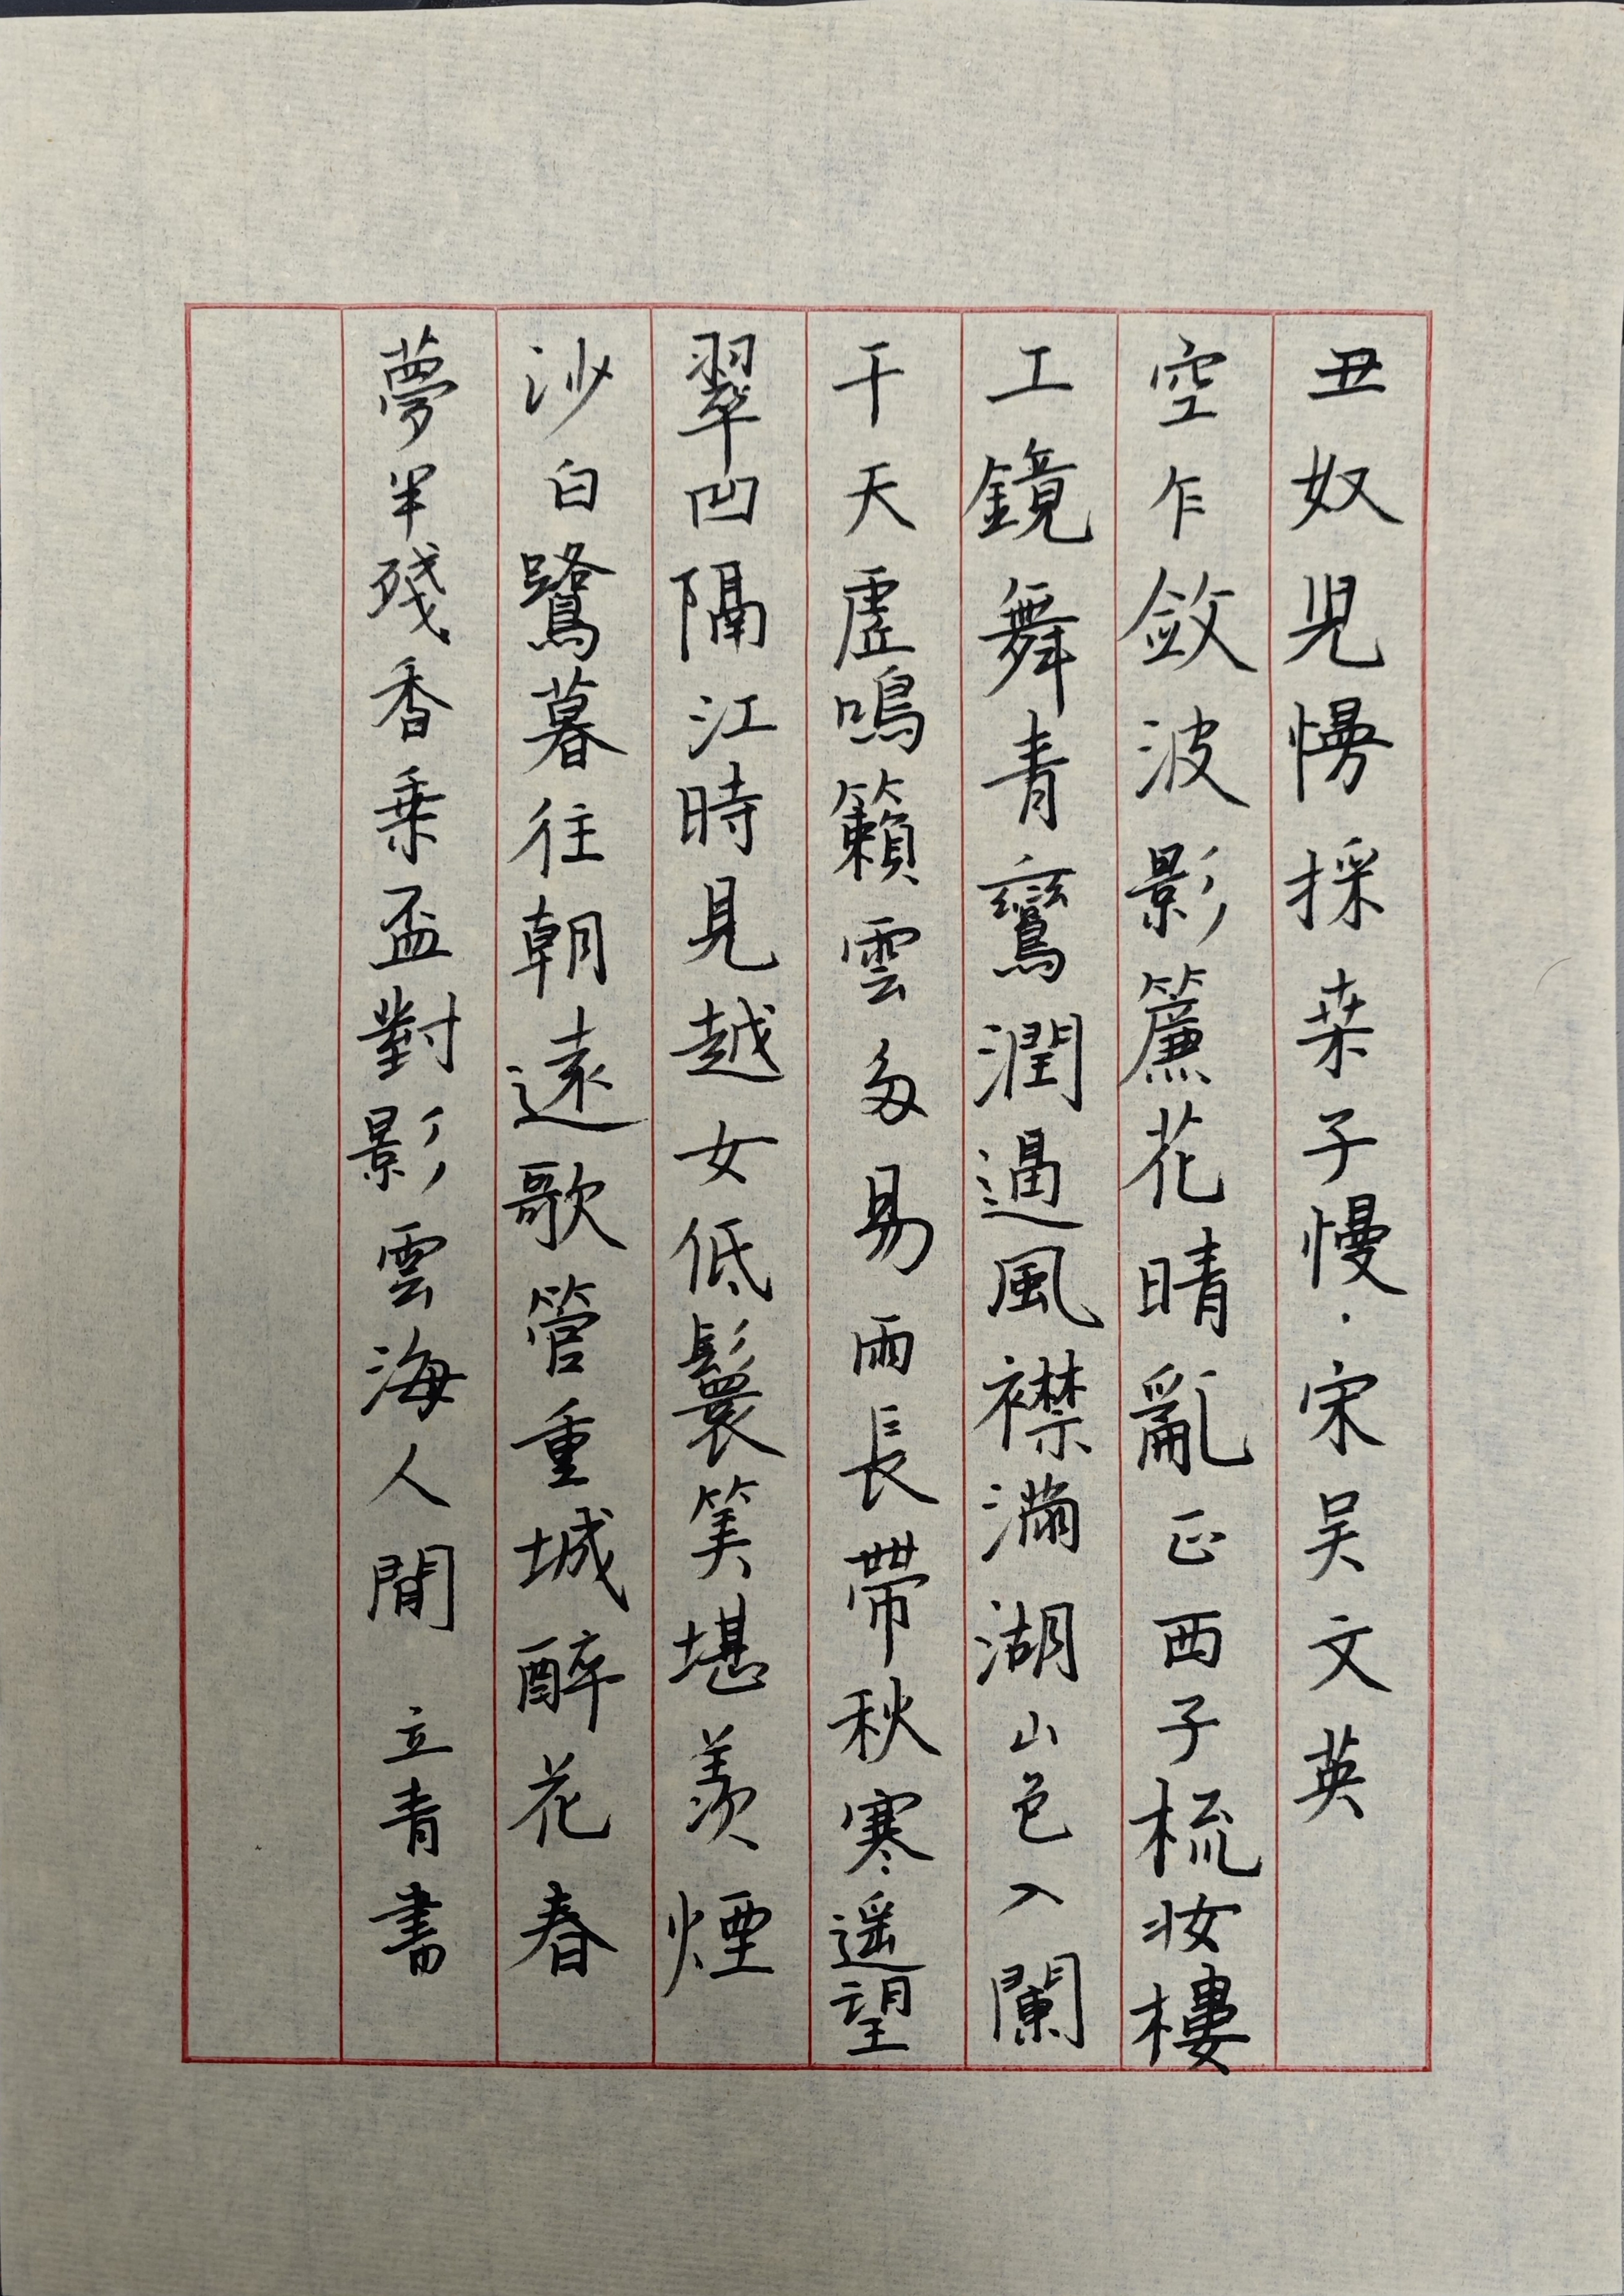 丑奴兒慢採桒子慢·宋吴文英
空乍斂波影簾花晴亂正西子梳妝樓
工鏡舞青鸞潤逼風襟滿湖山色入闌
干天虛鳴籟雲多易雨長帶秋寒遥望
翠凹隔江時見越女低鬟笑堪羨煙
沙白鷺暮往朝還歌管重城醉花春
夢半殘香乗盃對影雲海人間 立青書